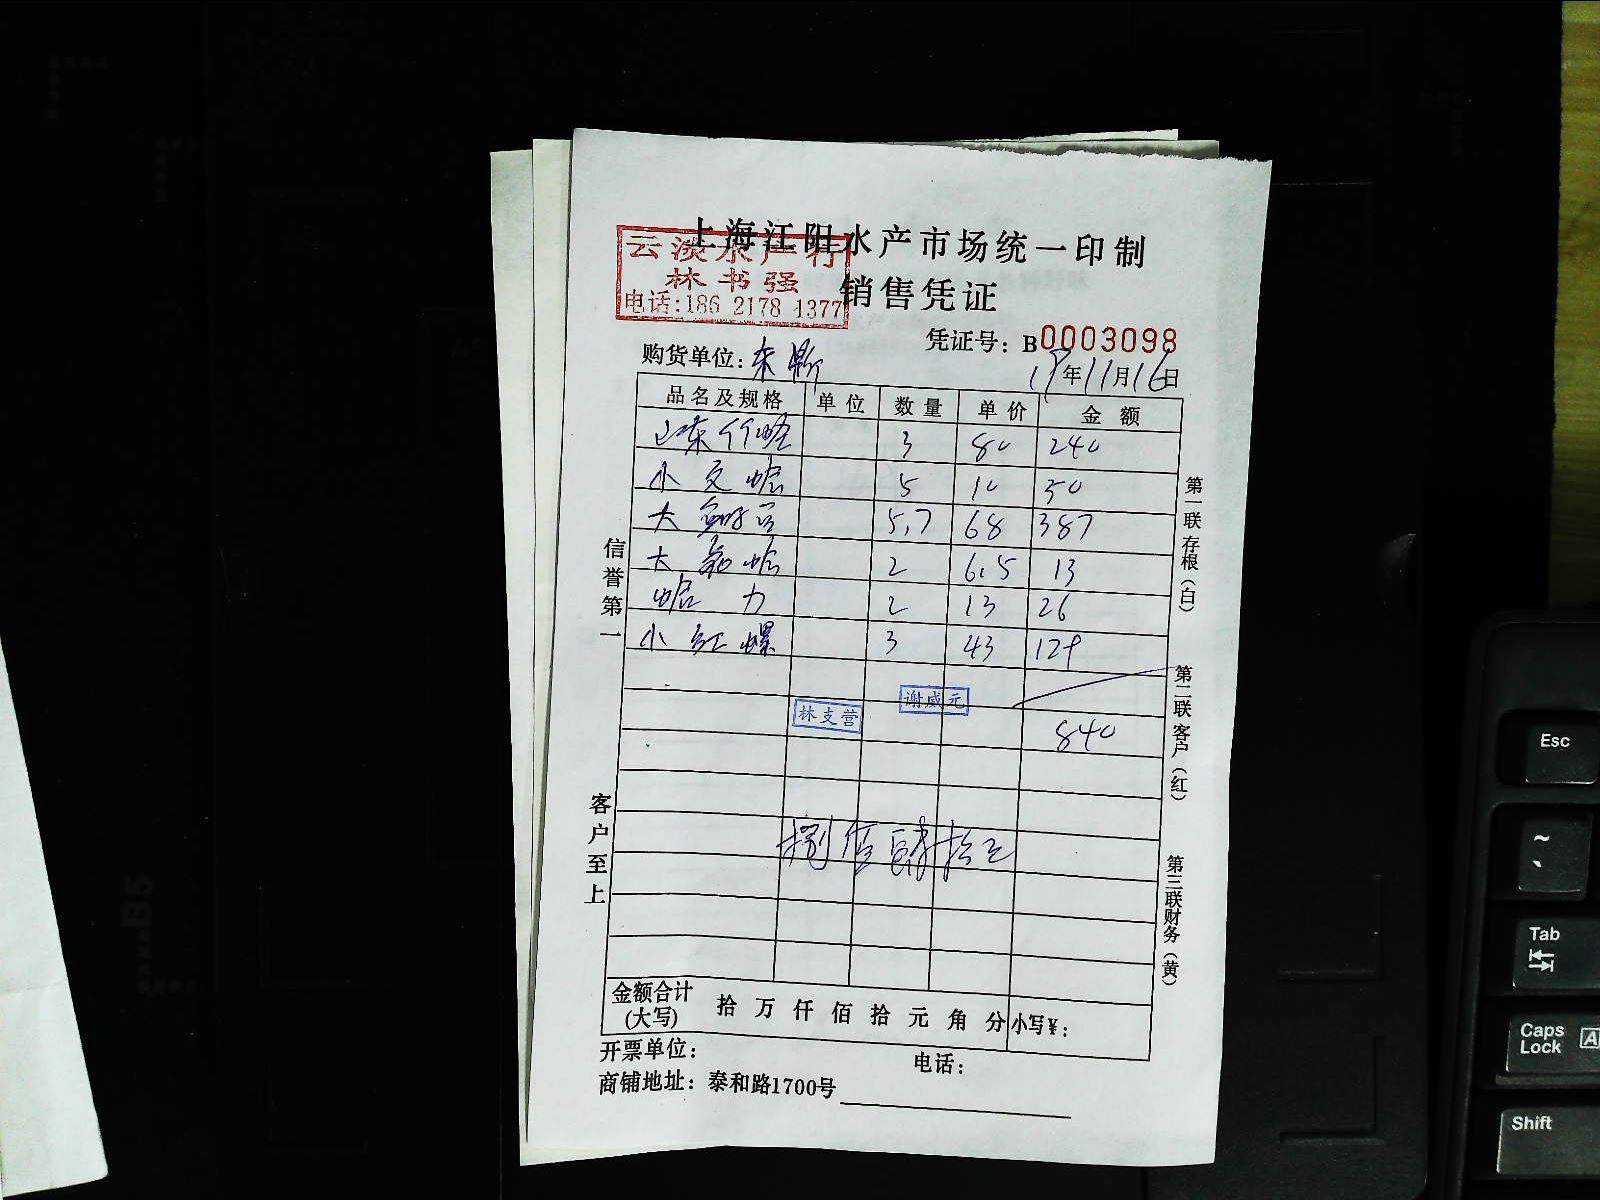 上海江阳水产市场统一印制
云淡水产行
林书强
电话:186 2178 1377
销售凭证
凭证号: B0003098
购货单位:
年11月16日
品名及规格 单位 数量 单价 金额
山东竹蛏 3 80 240
小文蛤 5 10 50
大 5.7 68 387
大 2 6.5 13
蛤 2 13 26
小红螺 3 43 129
谢威元
林支营
840
捌佰肆拾元
金额合计(大写) 拾 万 仟 佰 拾 元 角 分 小写¥:
开票单位: 电话:
商铺地址: 泰和路1700号
信誉第一
客户至上
第一联存根(白)
第二联客户(红)
第三联财务(黄)
Esc
~
`
Tab
Caps Lock
A
Shift